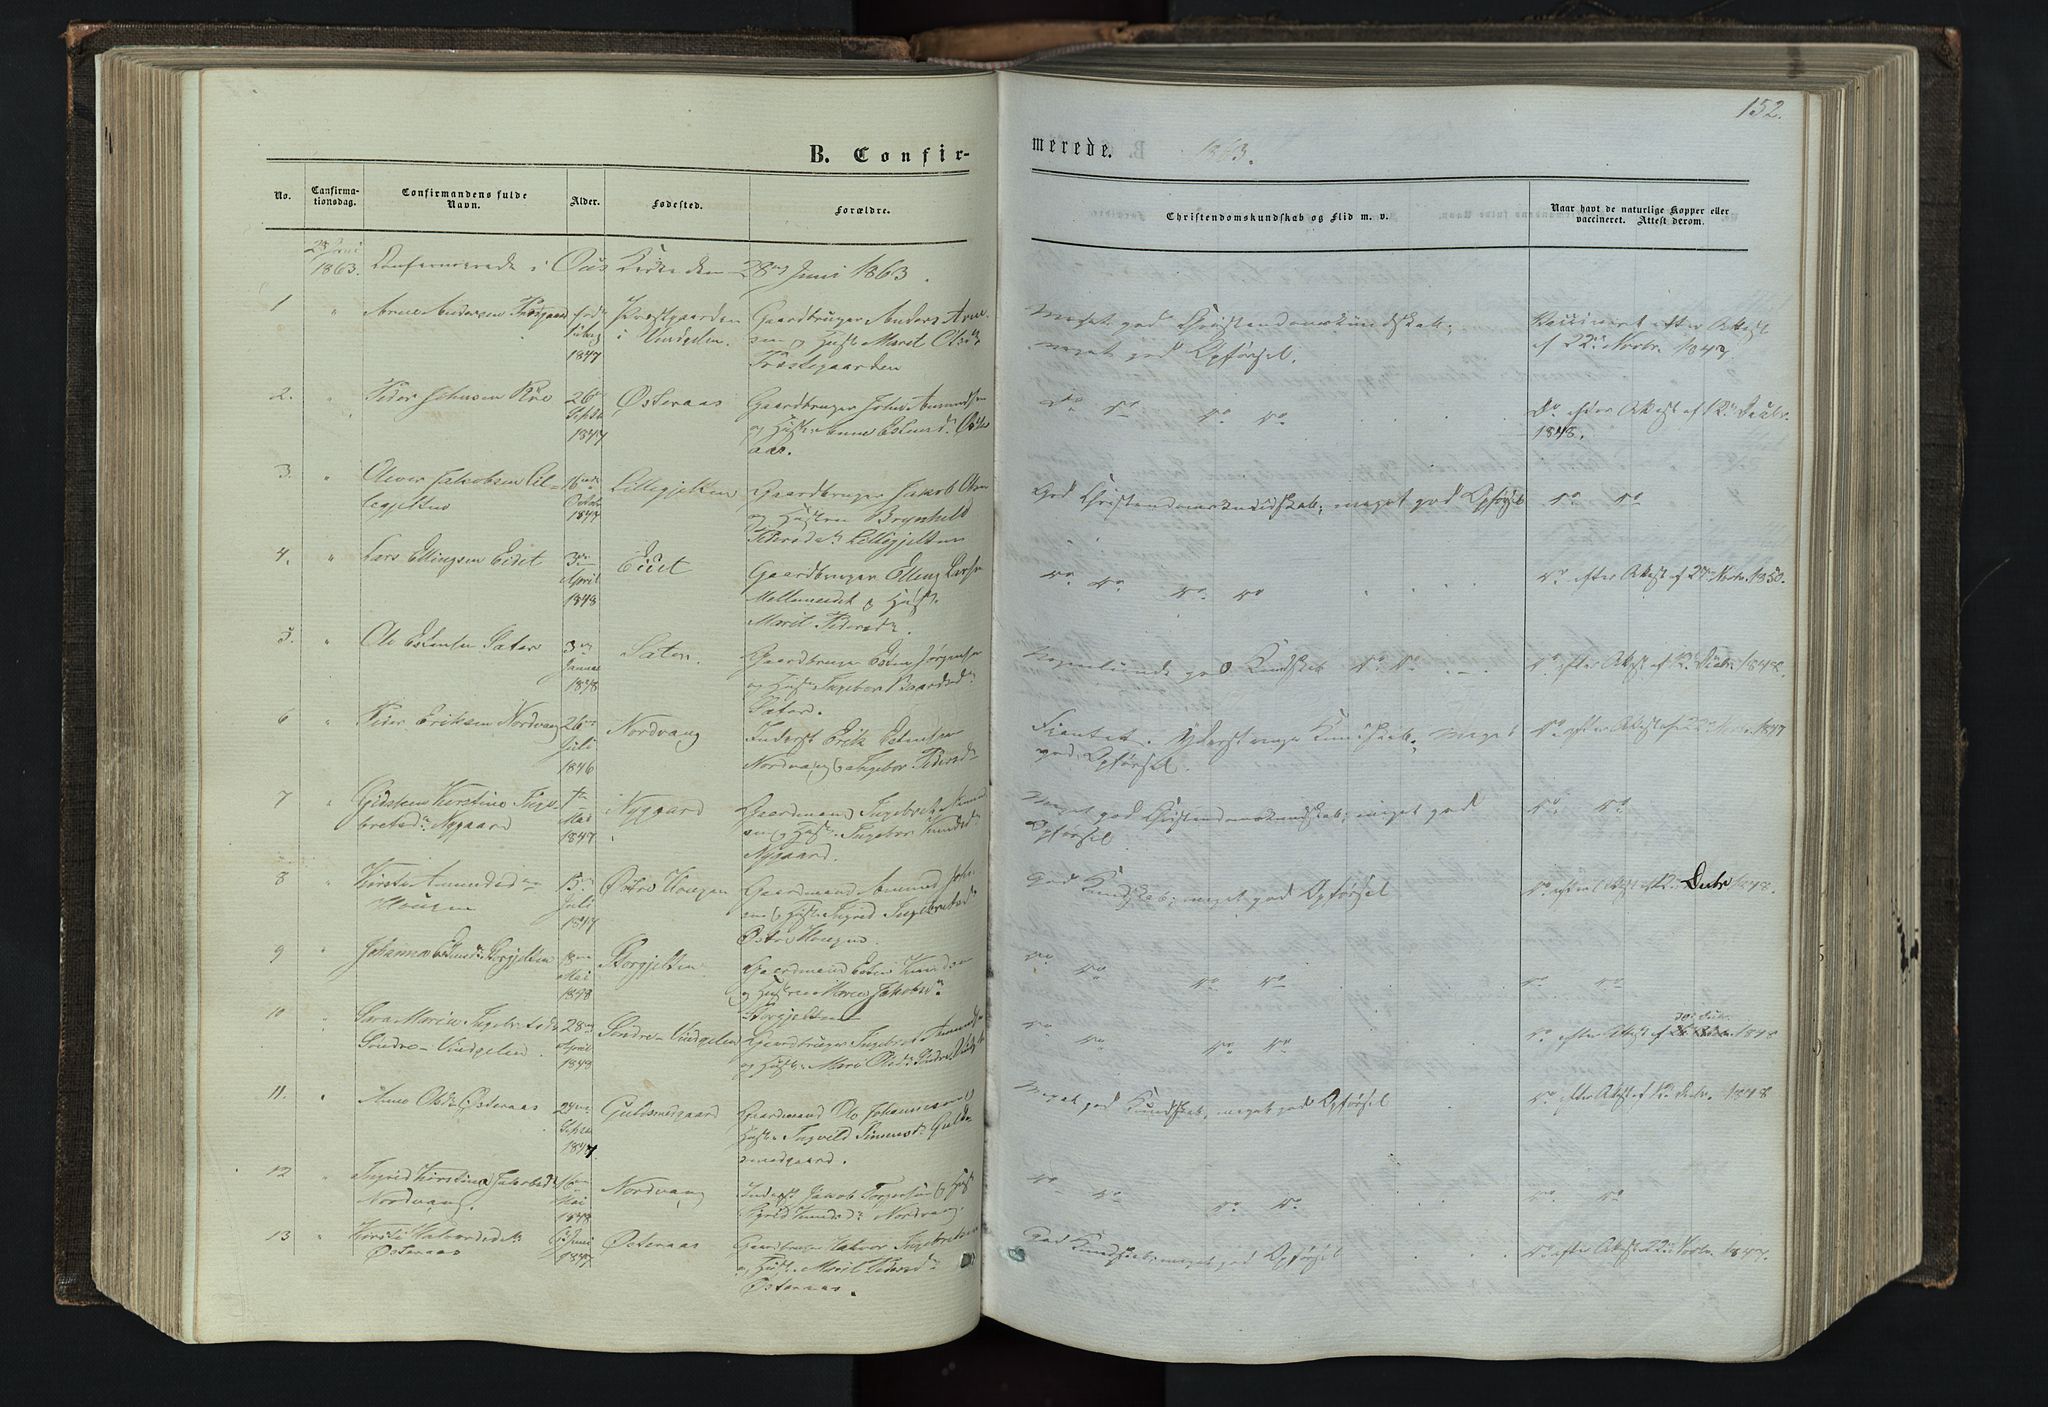 152.
B. Confir-
merede. 1863.
No.
Canfirma-
tionsdag.
Confirmandens fulde
Navn.
Alder.
Fødested.
Forældre.
Christendomskundskab og Flid m. v.
Naar havt de naturlige Kopper eller
vaccineret. Attest derom.
28 Juni
1863. Confirmerede i Kirke den 28de Juni 1863.
1 " Arne Andersen
1847
Præstgaarden
i Vindgelen.
Gaardbruger Anders Arne-
sen og Hust. Marit Olsdr
Præstegaarden
Meget god Christendomskundskab;
meget god Opførsel.
Vaccineret efter Attest
af 22de Novbr. 1847
2. " Peder Johnsen
26de
Septbr
1847
Østeraas
Gaardbruger John Amundsen
og Hustr. Anne Estensdr Øster-
aas.
Do Do Do Do
Do efter Attest af 12te Decbr.
1848.
3. " Jakobsen Lil-
legjelten
16de
Octobr
1847
Lillegjelten
Gaardbruger Jakob
og Hustru Brynhild
Pedersdr Lillegjelten
God Christendomskundskab; meget god Opførsel
Do Do
4. " Lars Ellingsen Eidet
3de
April
1848
Eidet
Gaardbruger Elling Larsen
Mellemeidet og Hust.
Marit Pedersdr.
Do Do Do Do
Do efter Attest af 27de Novbr. 1850.
5. " Ole Estensen Sater
3de
Januar
1848
Sater.
Gaardbruger Esten Jørgensen
og Hust. Ingebor Baardsdr
Sater.
Nogenlunde god Kundskab Do Do
Do efter Attest af 12te Decbr. 1848.
6 " Peder Eriksen Nordvang
26de
Juli
1846
Nordvang
Inderst Erik Estensen
Nordvang og Ingebor Pedersdr
Yderst ringe Kundskab; Meget
god Opførsel.
Do efter Attest af 22de Novbr. 1847
7 " Kirstine Inge-
bretsdr Nygaard
7de
Mai
1847
Nygaard
Gaardmand Ingebret Amund-
sen og Hust. Ingebor
Nygaard.
Meget god Christendomskundskab; meget god
Opførsel.
Do Do
8 " Kirsti Amundsdr
Hougen
15de
Juli
1847
Østre Hougen
Gaardmand Amund Joh-
sen og Hust. Ingrid Ingebretsdr
Østre Hougen.
God Kundskab; meget god Opførsel
Do efter Attest af 12te Decbr 1848.
9 " Johanna Estensdr Storgjelten
18de
Mai
1848
Storgjelten
Gaardmand Esten Knudsen
og Hustru Maren Jakobsdr
Storgjelten
Do Do Do Do
Do Do
10 " Sara Marie Ingebretsdr
Søndre-Vindgelen.
28de
April
1848
Søndre-Vindgelen
Gaardbruger Ingebret Amundsen
og Hust. Mari Olsdr
Do Do Do Do
Do efter Attest af Decbr. 1848
11. " Anne Olsdr Østeraas
24de
Septbr
1847
Guldsmedgaard
Gaardmand Ole Johannesen og
Hust. Ingvild Simensdr Guld-
smedgaard.
Meget god Kundskab, meget god Opførsel
Do efter Attest af 12te Decbr. 1848
12 " Ingrid Kirstine Jakobsdr
Nordvang.
16de
Mai
1848
Nordvang
Inderst Jakob Torgersen og Hust
Sigrid Knudsdr Nordvang.
Do Do Do Do
Do Do
13 " Kirsti Halvordsdr
Østeraas
Juni
1847
Østeraas
Gaardbruger Halvor Ingebretsen
og Hust. Marit Pedersdr
Østeraas.
God Kundskab, meget god Opførsel
Do efter Attest 22de Novbr. 1847.